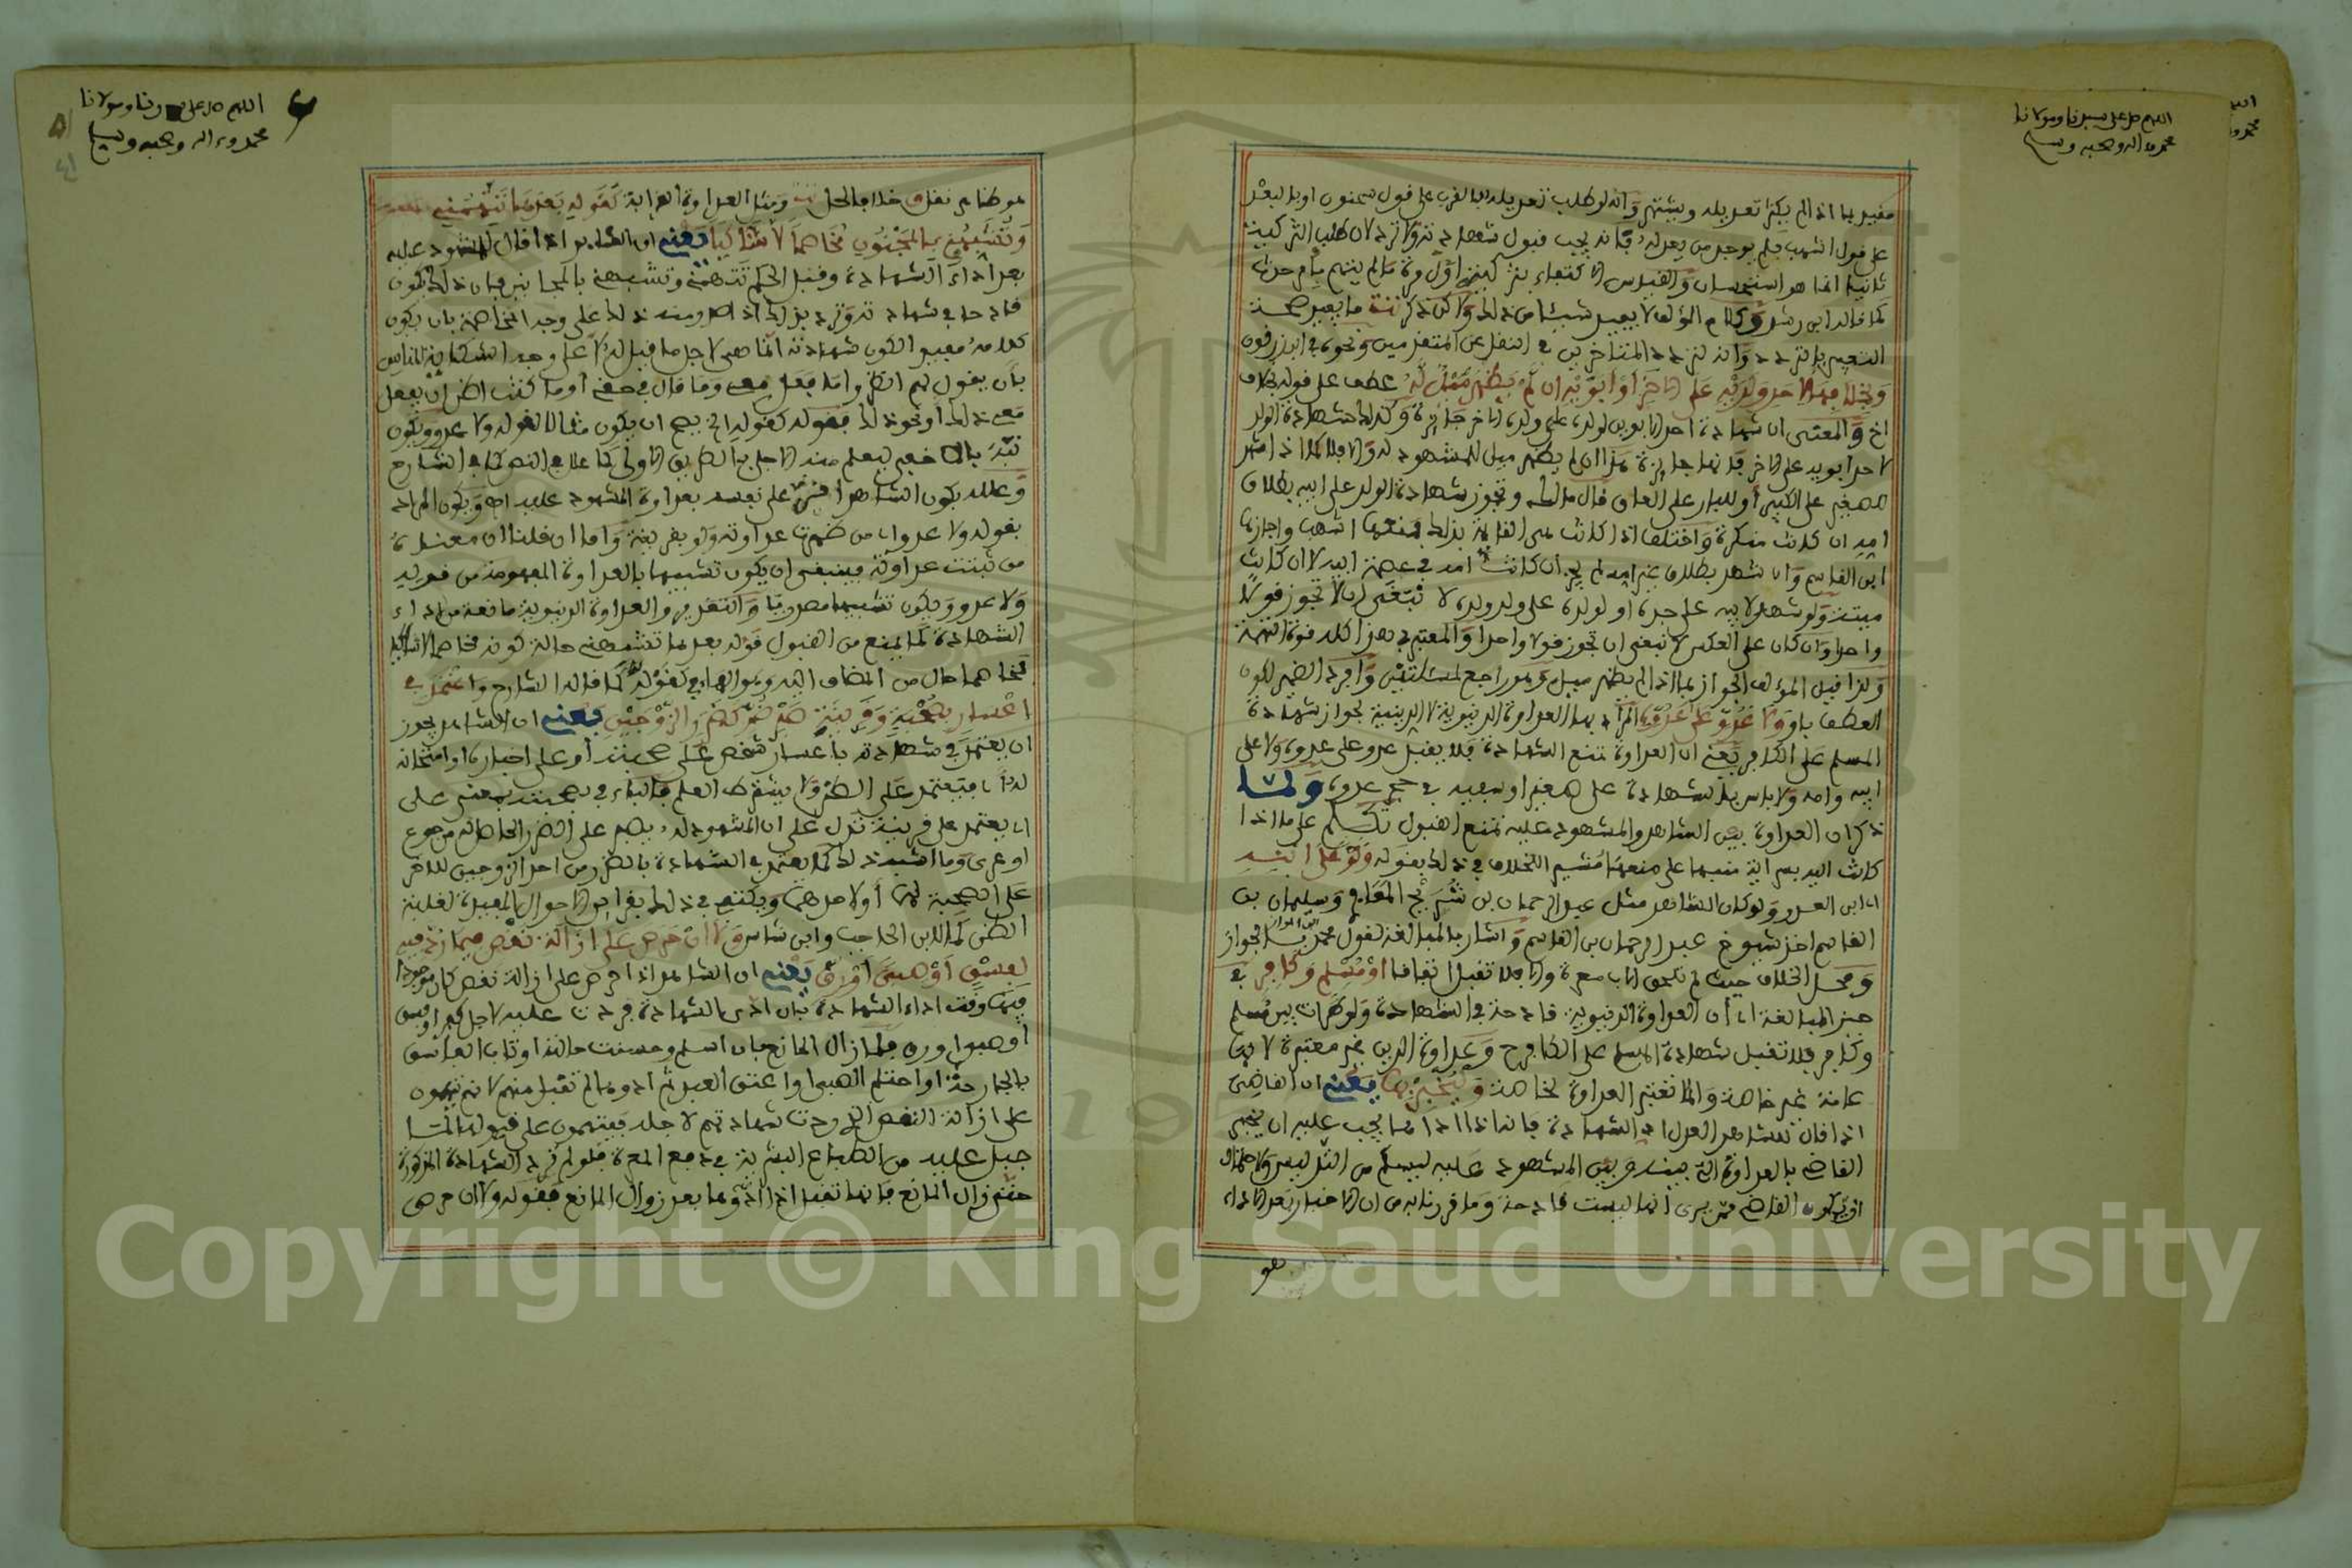 اللهم صل على سيدنا ومولانا
محمد وءاله وصحبه وسلم
مقيد بما اذا لم يكثر تعديله ويشتهر وانه لو طلب تعديله بالقرب على قول سحنون او بالبعد
على قول اشهب فلم يوجد من يعدله فانه يجب قبول شهادته ولا ترد لان طلب التزكية
ثانيا انما هو استحسان والقياس الاكتفاء بتزكيته اول مرة ما لم يتهم بامر حدث
كما قاله ابن رشد وكلام المؤلف لا يفيد شيئا من ذلك ولاكن ذكر تت ما يفيد صحة
التعبير بالتردد وانه لتردد المتاخرين في النقل عن المتقدمين ونحوه في ابن زرقون
وبخلافها لاحد ولديه على الاخر او ابويه ان لم يظهر ميل له عطف على قوله بخلاف
اخ والمعنى ان شهادة احد الابوين لولده على ولده الاخر جائزة وكذلك شهادة الولد
لاحد ابويه على الاخر فانها جائزة هذا ان لم يظهر ميل للمشهود له والا فلا كما اذا شهد
للصغير على الكبير او للبار على العاق قال مالك وتجوز شهادة الولد على ابيه بطلاق
امه ان كانت منكرة واختلف اذا كانت هي القائمة بذلك فمنعها اشهب واجازها
ابن القاسم وان شهد بطلاق غير امه لم يجز ان كانت امه في عصمة ابيه لا ان كانت
ميتة ولو شهد لابيه على جده او لولده على ولد ولده لا نبتغي ان لا تجوز قولا
واحدا وان كان على العكس لانبغى ان تجوز قولا واحدا والمعتبر في هذا كله قوة التهمة
ولذا قيد المؤلف الجواز بما اذا لم يظهر ميل وهو راجع لمسئلتين وافرد الضمير لكون
العطف باو ولا عدو على عدوه المراد بها العداوة الدنيوية لا الدينية لجواز شهادة
المسلم على الكافر يعني ان العداوة تمنع الشهادة فلا يقبل عدو على عدوه ولا على
ابنه وامه ولا باس بالشهادة على صغير او سفيه في حجر عدوه ولما
ذكر ان العداوة بين الشاهد والمشهود عليه تمنع القبول تكلم على ما اذا
كانت اليه سراية منبها على منعها مشيرا للخلاف في ذلك بقوله ولو على ابنه
اي ابن العدو ولو كان الشاهد مثل عبد الرحمان بن شريح المعافري وسليمان بن
القاسم اخذ شيوخ عبد الرحمان بن القاسم واشار بالمبالغة لقول محمد بن المواز بالجواز
ومحل الخلاف حيث لم تلحق الاب معرة والا فلا تقبل اتفاقا او مسلم وكافر في
حيز المبالغة اي ان العداوة الدنيوية قادحة في الشهادة ولو طرات بين مسلم
وكافر فلا تقبل شهادة المسلم على الكافر ح وعداوة الدين غير معتبرة لانها
عامة غير خاصة وانما تعتبر العداوة الخاصة وليخبر بها يعني ان القاضي
اذا قال للشاهد العدل اد الشهادة فانه اذا اداها يجب عليه ان يخبر
القاضي بالعداوة التي بينه وبين المشهود عليه ليسلم من التدليس ولاحتمال
ان يكون القاضي ممن يرى انها ليست قادحة وما قررنا به من ان الاخبار بعد الاداء
هو
اللهم صل على سيدنا ومولانا
محمد وءاله وصحبه وسلم
هو ظاهر نقل ق خلافا لحل تت ومثل العداوة القرابة كقوله بعدها تتهمني
وتشبهني بالمجنون مخاصما لا شاكيا يعني ان الشاهد اذا قال للمشهود عليه
بعد اداء الشهادة وقبل الحكم تتهمني وتشبهني بالمجانين فان ذلك يكون
قادحا في شهادته وترد بذلك اذا صدر منه ذلك على وجه المخاصمة بان يكون
كلامه مفيدا لكون شهادته انما هي لاجل ما قيل له لا على وجه الشكاية للناس
بان يقول لهم انظروا ما فعل معي وما قال في حقي او ما كنت اظن ان يفعل
معي ذلك او نحو ذلك فقوله كقوله الخ يصح ان يكون مثالا لقوله ولا عدو ويكون
نبه بالاخفى ليعلم منه الاجلى بالطريق الاولى كما علل في النص كما في الشارح
وعلله بكون الشاهد اقر على نفسه بعداوة المشهود عليه اهـ ويكون المراد
بقوله ولا عدو اي من ظهرت عداوته ولو بقرينة واما ان قلنا ان معناه
من ثبتت عداوته فينبغي ان يكون تشبيها بالعداوة المفهومة من قوله
ولا عدو ويكون تشبيها معنويا والتقدير والعداوة الدنيوية مانعة من اداء
الشهادة كما يمنع من القبول قوله بعدها تتهمني حالة كونه مخاصما لا شاكيا
فمخاصما حال من المضاف اليه وهو الهاء في كقوله كما قاله الشارح واعتمد في
اعسار بصحبة وقرينة صبر ضر كضرر الزوجين يعني ان الشاهد يجوز
ان يعتمد في شهادته باعسار شخص على صحبته او على اختباره او امتحانه
له اي فيعتمد على الظن ولا يشترط العلم فالباء في بصحبته بمعنى على
اي يعتمد على قرينة تدل على ان المشهود له يصبر على الضرر الحاصل له من جوع
او عري وما اشبه ذلك كما يعتمد في الشهادة بالضرر من احد الزوجين للاخر
على الصحبة لهما او لاحدهما ويكتفي في ذلك بقرائن الاحوال المفيدة لغلبة
الظن كما لابن الحاجب وابن شاس ولا ان حرص على ازالة نقص فيما رد فيه
لفسق او صبى او رق يعني ان الشاهد اذا حرص على ازالة نقص كان موجودا
فيه وقت اداء الشهادة بان ادى الشهادة فردت عليه لاجل كفر او فسق
او صبا او رق فلما زال المانع بان اسلم وحسنت حالته او تاب الفاسق
بالجارحة او احتلم الصبي او اعتق العبد ثم ادوها لم تقبل منهم لانهم يتهمون
على ازالة النقص الذي ردت شهادتهم لاجله فيتهمون على قبولها لما
جبل عليه من الطباع البشرية في دفع المعرة فلو لم ترد الشهادة المذكورة
حتى زال المانع فانها تقبل اذا ادوها بعد زوال المانع فقوله ولا ان حرص
Copyright © King Saud University